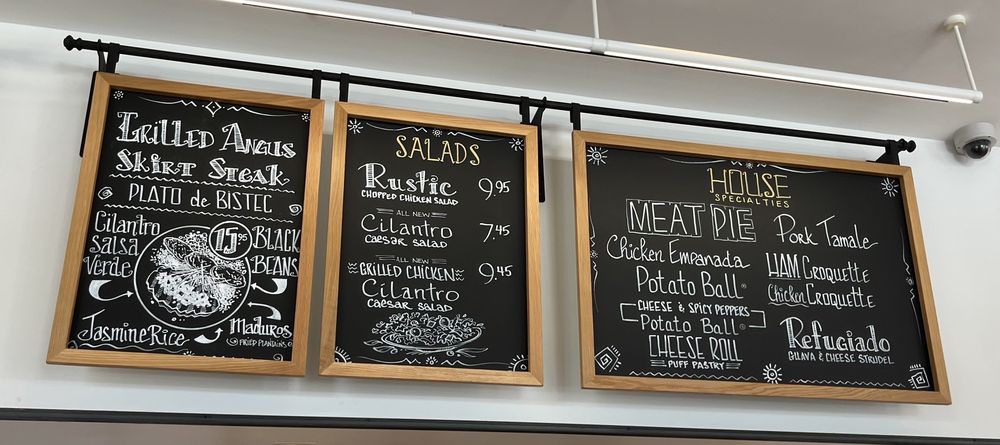 Grilled Angus
Skirt Steak
PLATO de BISTEC
Cilantro
Salsa
Verde
15.95
BLACK
BEANS
Jasmine Rice
Maduros
FRIED PLANTAINS
SALADS
Rustic 9.95
CHOPPED CHICKEN SALAD
ALL NEW
Cilantro 7.45
CAESAR SALAD
ALL NEW
GRILLED CHICKEN 9.45
Cilantro
CAESAR SALAD
HOUSE
SPECIALTIES
MEAT PIE
Chicken Empanada
Potato Ball®
CHEESE & SPICY PEPPERS
Potato Ball®
CHEESE ROLL
PUFF PASTRY
Pork Tamale
HAM Croquette
Chicken Croquette
Refugiado
GUAVA & CHEESE STRUDEL